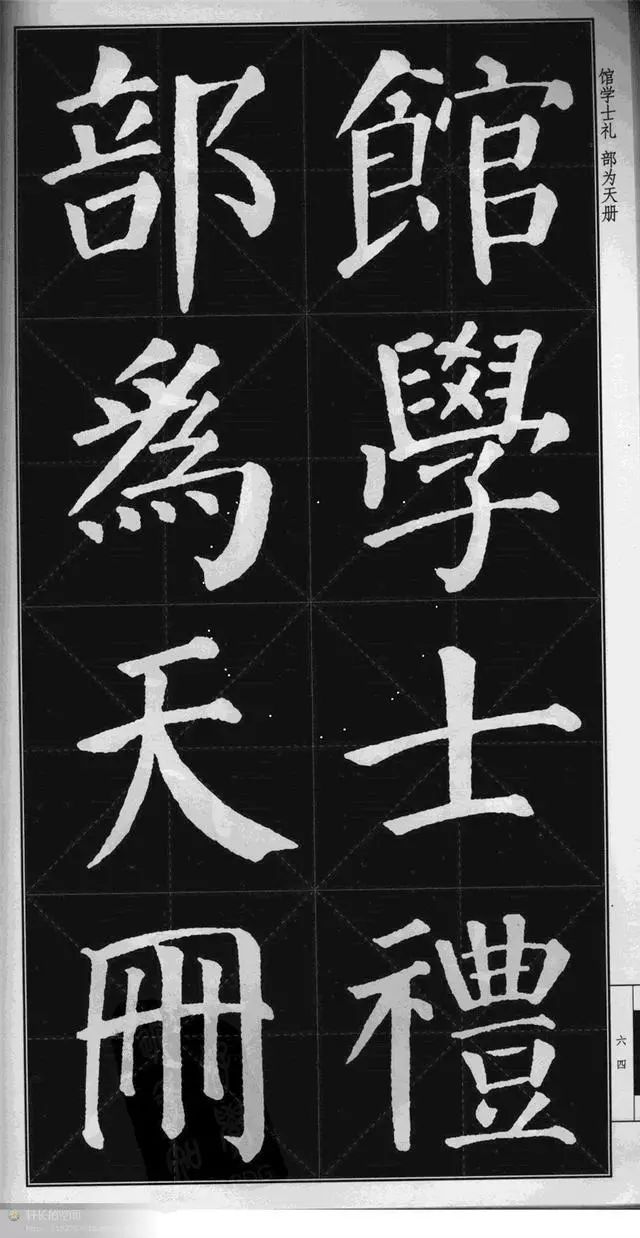 館學士禮
部為天冊
馆学士礼 部为天册
六四